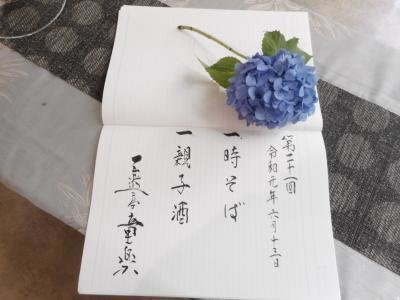 第二十一回
令和元年 六月十三日
一 時そば
一 親子酒